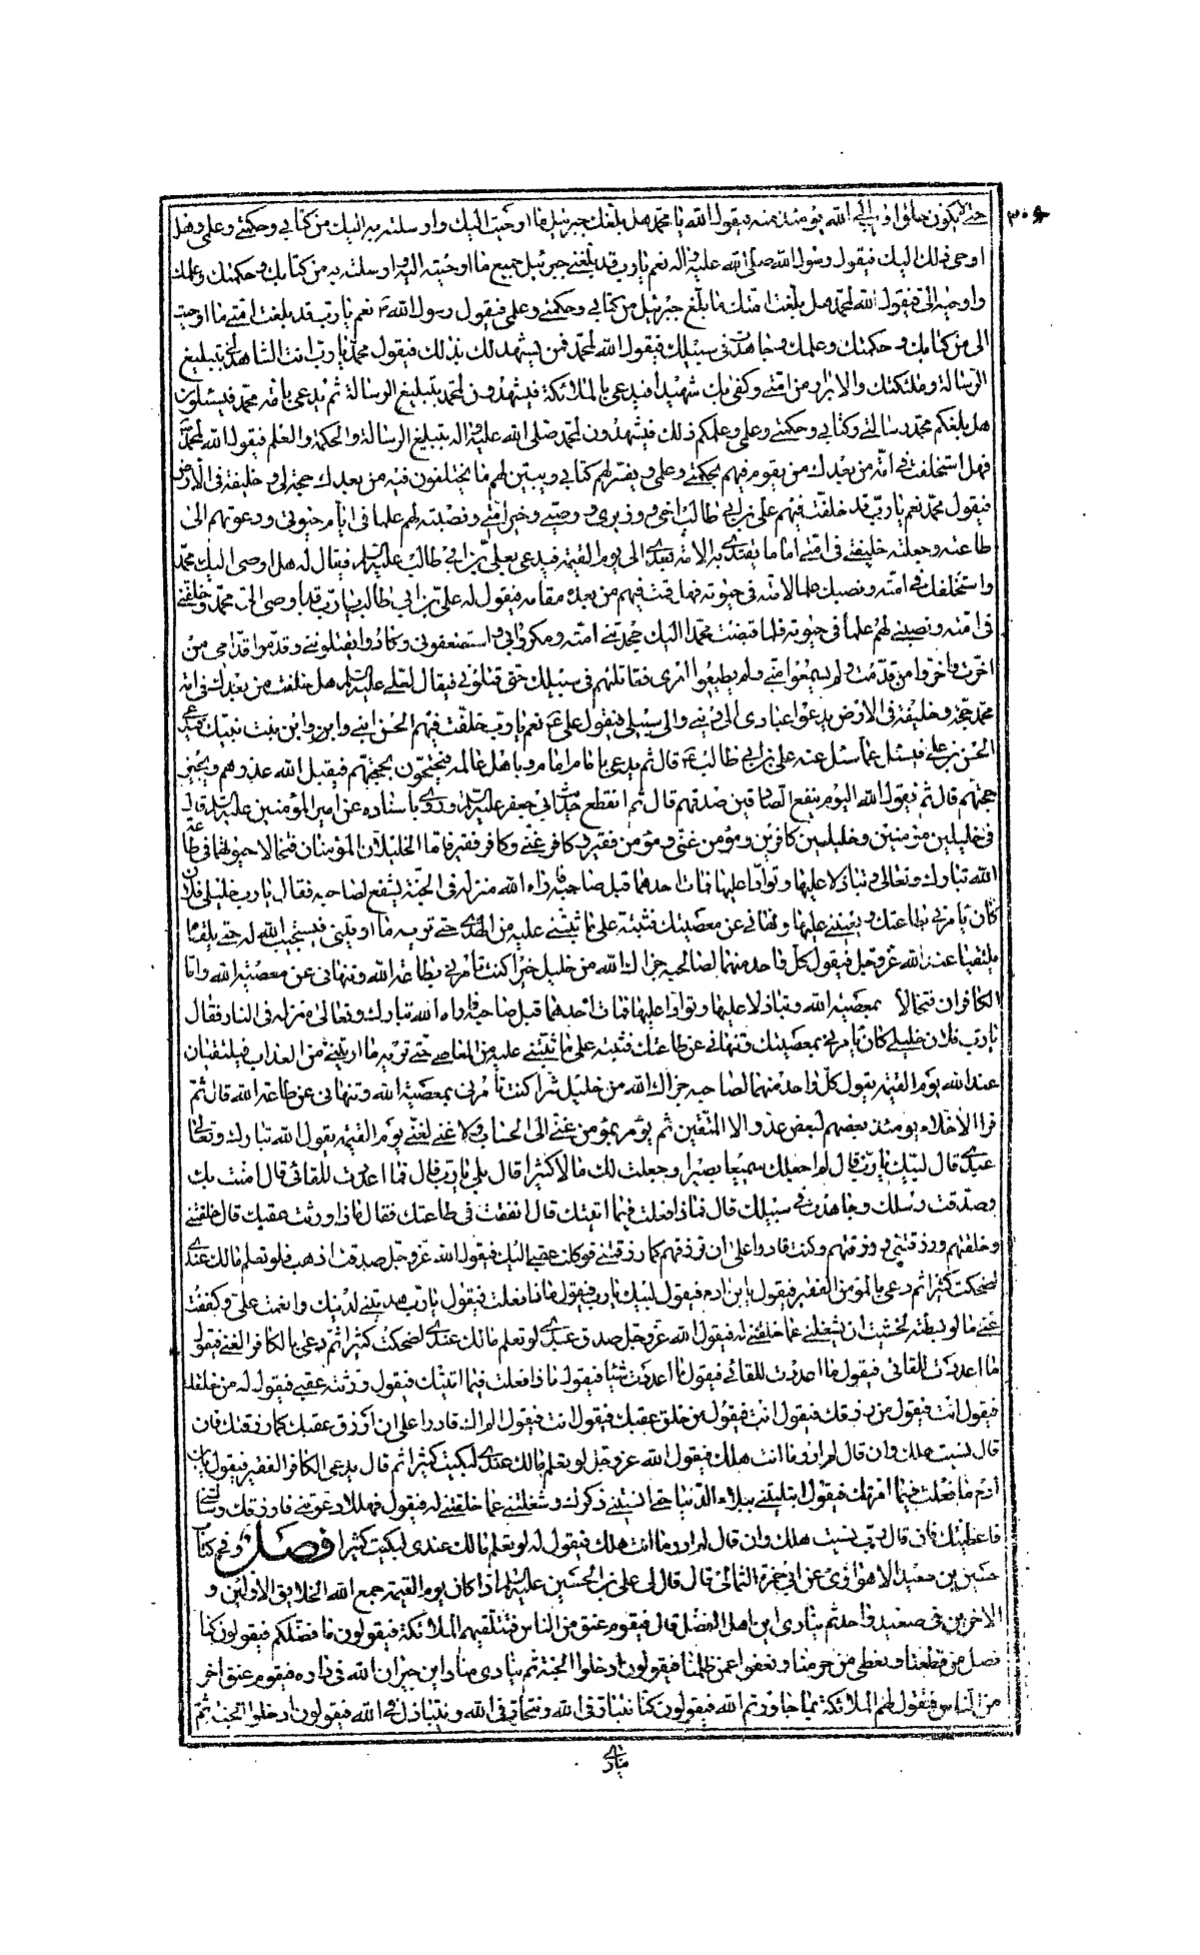 الله يومئذ منه فيقول الله يا محمد هل بلغك جبرئيل ما اوحيت اليك وارسلته به اليك من كتابي وحكمتي وعلمي وهل
اوحى ذلك اليك فيقول رسول الله صلى الله عليه واله نعم يا رب قد بلغني جبرئيل جميع ما اوحيته اليه وارسلته به من كتابك وحكمتك وعلمك
واوحاه الي فيقول الله لمحمد هل بلغت امتك ما بلغ جبرئيل من كتابي وحكمتي وعلمي فيقول رسول الله ص نعم يا رب قد بلغت امتي ما اوحيت
الي من كتابك وحكمتك وعلمك وجاهدت في سبيلك فيقول الله لمحمد فمن يشهد لك بذلك فيقول محمد يا رب انت الشاهد لي بتبليغ
الرسالة وملئكتك والابرار من امتي وكفى بك شهيدا فيدعى بالملائكة فيشهدون لمحمد بتبليغ الرسالة ثم يدعى بامة محمد فيسئلون
هل بلغكم محمد رسالتي وكتابي وحكمتي وعلمي وعلمكم ذلك فيشهدون لمحمد صلى الله عليه واله بتبليغ الرسالة والحكمة والعلم فيقول الله لمحمد
فهل استخلفت في امتك من بعدك من يقوم فيهم بحكمتي وعلمي ويفسر لهم كتابي ويبين لهم ما يختلفون فيه من بعدك حجة لي وخليفة في الارض
فيقول محمد نعم يا رب قد خلفت فيهم علي بن ابي طالب اخي ووزيري ووصيي وخير امتي ونصبته لهم علما في ايام حيوتي ودعوتهم الى
طاعته وجعلته خليفتي في امتي اماما يقتدي به الامة بعدي الى يوم القيمة فيدعى بعلي بن ابي طالب عليه السلم فيقال له هل اوصى اليك محمد
واستخلفك في امته ونصبك علما لامته في حيوته فهل قمت فيهم من بعده مقامه فيقول له علي بن ابي طالب يا رب قد اوصى الي محمد وخلفني
في امته ونصبني لهم علما في حيوته فلما قبضت محمدا اليك جحدتني امته ومكروا بي واستضعفوني وكادوا يقتلونني وقدموا قدامي من
اخرت واخروا من قدمت ولم يسمعوا مني ولم يطيعوا امري فقاتلتهم في سبيلك حتى قتلوني فيقال لعلي عليه السلم هل خلفت من بعدك في امة
محمد حجة وخليفة في الارض يدعو عبادي الى ديني والى سبيلي فيقول علي ع نعم يا رب خلفت فيهم الحسن ابني وابن بنت نبيك فيدعى
الحسن بن علي فيسئل عما سئل عنه علي بن ابي طالب ع قال ثم يدعى بامام امام وباهل عالمه فيحتجون بحجتهم فيقبل الله عذرهم ويجيز
حجتهم قال ثم يقول الله اليوم ينفع الصادقين صدقهم قال ثم انقطع حديث ابي جعفر عليه السلم وروى باسناده عن امير المؤمنين عليه السلم قال
في خليلين مؤمنين وخليلين كافرين ومؤمن غني ومؤمن فقير وكافر غني وكافر فقير فاما الخليلان المؤمنان فتخالا حيوتهما في طاعة
الله تبارك وتعالى وتباذلا عليها وتوادا عليها فمات احدهما قبل صاحبه فاراه الله منزله في الجنة يشفع لصاحبه فقال يا رب خليلي فلان
كان يامرني بطاعتك ويعينني عليها وينهاني عن معصيتك فثبته على ما ثبتني عليه من الهدى حتى تريه ما اريتني فيستجيب الله له حتى يلتقيا
عند الله عز وجل فيقول كل واحد منهما لصاحبه جزاك الله من خليل خيرا كنت تامرني بطاعة الله وتنهاني عن معصية الله واما
الكافران فتخالا بمعصية الله وتباذلا عليها وتوادا عليها فمات احدهما قبل صاحبه فاراه الله تبارك وتعالى منزله في النار فقال
يا رب فلان خليلي كان يامرني بمعصيتك وينهاني عن طاعتك فثبته على ما ثبتني عليه من المعاصي حتى تريه ما اريتني من العذاب فيلتقيان
عند الله يوم القيمة يقول كل واحد منهما لصاحبه جزاك الله من خليل شرا كنت تامرني بمعصية الله وتنهاني عن طاعة الله قال ثم
قرا الاخلاء يومئذ بعضهم لبعض عدو الا المتقين ثم يؤمر بمؤمن غني الى الحساب يقول الله تبارك وتعالى
عبدي قال لبيك يا رب قال الم اجعلك سميعا بصيرا وجعلت لك مالا كثيرا قال بلى يا رب قال فما اعددت للقائي قال امنت بك
وصدقت رسلك وجاهدت في سبيلك قال فماذا فعلت فيما اتيتك قال انفقت في طاعتك فقال ماذا ورثت عقبك قال خلقتني
وخلقتهم ورزقتني ورزقتهم وكنت قادرا على ان ترزقهم كما رزقتني فوكلت عقبي اليك فيقول الله عز وجل صدقت اذهب فلو تعلم مالك عندي
لضحكت كثيرا ثم دعى بالمؤمن الفقير فيقول يا بن ادم فيقول لبيك يا رب فيقول ماذا فعلت فيقول يا رب هديتني لدينك وانعمت علي وكففت
عني ما لو بسطته لخشيت ان يشغلني عما خلقتني له فيقول الله عز وجل صدق عبدي لو تعلم مالك عندي لضحكت كثيرا ثم دعى بالكافر الغني فيقول
ما اعددت للقائي فيقول ما اعددت شيئا فيقول ماذا فعلت فيما اتيتك فيقول ورثته عقبي فيقول له من خلقك
فيقول انت فيقول من رزقك فيقول انت فيقول من خلق عقبك فيقول انت فيقول الم اك قادرا على ان ارزق عقبك كما رزقتك فان
قال نسيت هلك وان قال لم ادر ما انت هلك فيقول الله عز وجل لو تعلم مالك عندي لبكيت كثيرا ثم قال يدعى الكافر الفقير فيقول يا بن
ادم ما فعلت فيما امرتك فيقول ابتليتني ببلاء الدنيا حتى انسيتني ذكرك وشغلتني عما خلقتني له فيقول فهلا دعوتني فارزقك وسالتني
فاعطيك فان قال رب نسيت هلك وان قال لم ادر ما انت هلك فيقول له لو تعلم مالك عندي لبكيت كثيرا فصل وفي كتاب
حسين بن سعيد الاهوازي عن ابي حمزة الثمالي قال قال لي علي بن الحسين عليه السلم اذا كان يوم القيمة جمع الله الخلايق الاولين و
الاخرين في صعيد واحد ثم ينادي اين اهل الفضل قال فيقوم عنق من الناس فتتلقيهم الملائكة فيقولون ما فضلكم فيقولون كنا
نصل من قطعنا ونعطي من حرمنا ونعفو عمن ظلمنا فيقولون ادخلوا الجنة ثم ينادي مناد اين جيران الله في داره فيقوم عنق اخر
من الناس فيقول لهم الملائكة بما جاورتم الله فيقولون كنا نتباذر في الله ونتحاب في الله ونتباذل في الله فيقولون ادخلوا الجنة ثم
ينادي